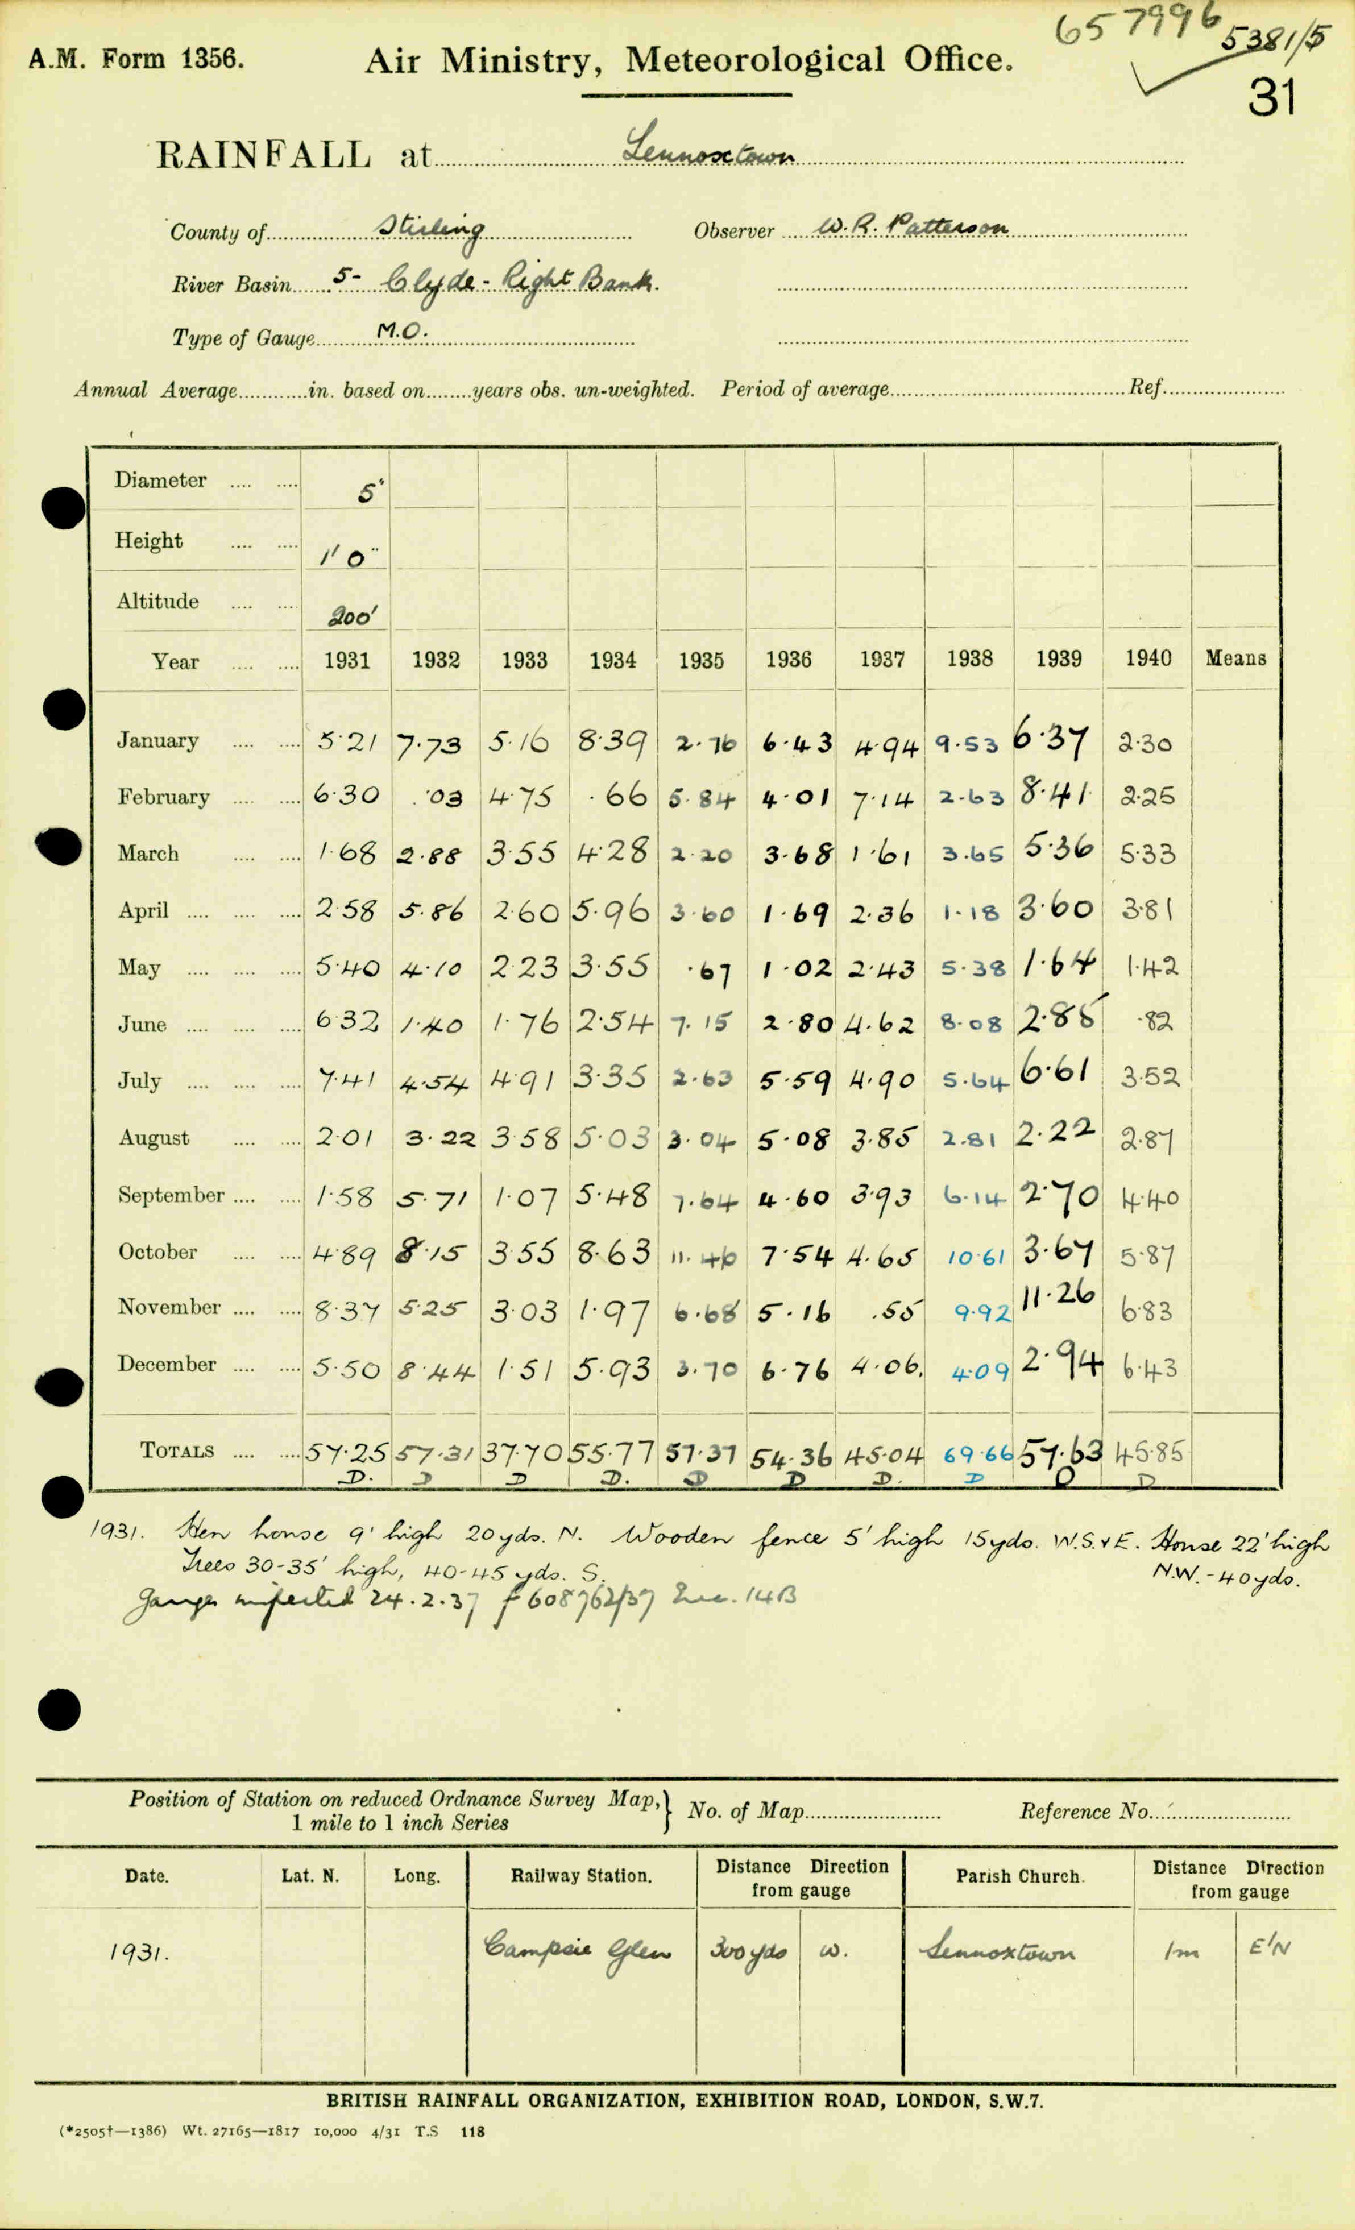 657996
5381/5
A.M. Form 1356. Air Ministry, Meteorological Office.
31
RAINFALL at Lennoxtown
County of Stirling Observer W.R. Patterson
River Basin 5- Clyde - Right Bank.
Type of Gauge M.O.
Annual Average in. based on years obs. un-weighted. Period of average Ref.
Diameter 5"
Height 1' 0"
Altitude 200'
Year 1931 1932 1933 1934 1935 1936 1937 1938 1939 1940 Means
January 5.21 7.73 5.16 8.39 2.76 6.43 4.94 9.53 6.37 2.30
February 6.30 .03 4.75 .66 5.84 4.01 7.14 2.63 8.41 2.25
March 1.68 2.88 3.55 4.28 2.20 3.68 1.61 3.65 5.36 5.33
April 2.58 5.86 2.60 5.96 3.60 1.69 2.36 1.18 3.60 3.81
May 5.40 4.10 2.23 3.55 .67 1.02 2.43 5.38 1.64 1.42
June 6.32 1.40 1.76 2.54 7.15 2.80 4.62 8.08 2.85 .82
July 7.41 4.54 4.91 3.35 2.63 5.59 4.90 5.64 6.61 3.52
August 2.01 3.22 3.58 5.03 3.04 5.08 3.85 2.81 2.22 2.87
September 1.58 5.71 1.07 5.48 7.64 4.60 3.93 6.14 2.70 4.40
October 4.89 8.15 3.55 8.63 11.46 7.54 4.65 10.61 3.67 5.87
November 8.37 5.25 3.03 1.97 6.68 5.16 .55 9.92 11.26 6.83
December 5.50 8.44 1.51 5.93 3.70 6.76 4.06. 4.09 2.94 6.43
TOTALS 57.25 57.31 37.70 55.77 57.37 54.36 45.04 69.66 57.63 45.85
D. D D D. D D D. D D D
1931. Hen house 9' high 20yds. N. Wooden fence 5' high 15yds. W.S.&E. House 22' high
Trees 30-35' high, 40-45 yds. S. N.W.-40yds.
Gauge inspected 24.2.37 f 608762/37 Enc. 14B
Position of Station on reduced Ordnance Survey Map, } No. of Map Reference No.
1 mile to 1 inch Series
Date. Lat. N. Long. Railway Station. Distance Direction from gauge Parish Church. Distance Direction from gauge
1931. Campsie Glen 300yds W. Lennoxtown 1m E'N
BRITISH RAINFALL ORGANIZATION, EXHIBITION ROAD, LONDON, S.W.7.
(*2505†—1386) Wt. 27165—1817 10,000 4/31 T.S 118